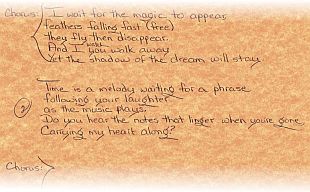 Chorus: I wait for the magic to appear,
feathers falling fast (free)
they fly then disappear.
And I watch you walk away
Yet the shadow of the dream will stay.
Time is a melody waiting for a phrase
② following your laughter
as the music plays.
Do you hear the notes that linger when you're gone
Carrying my heart along?
Chorus: